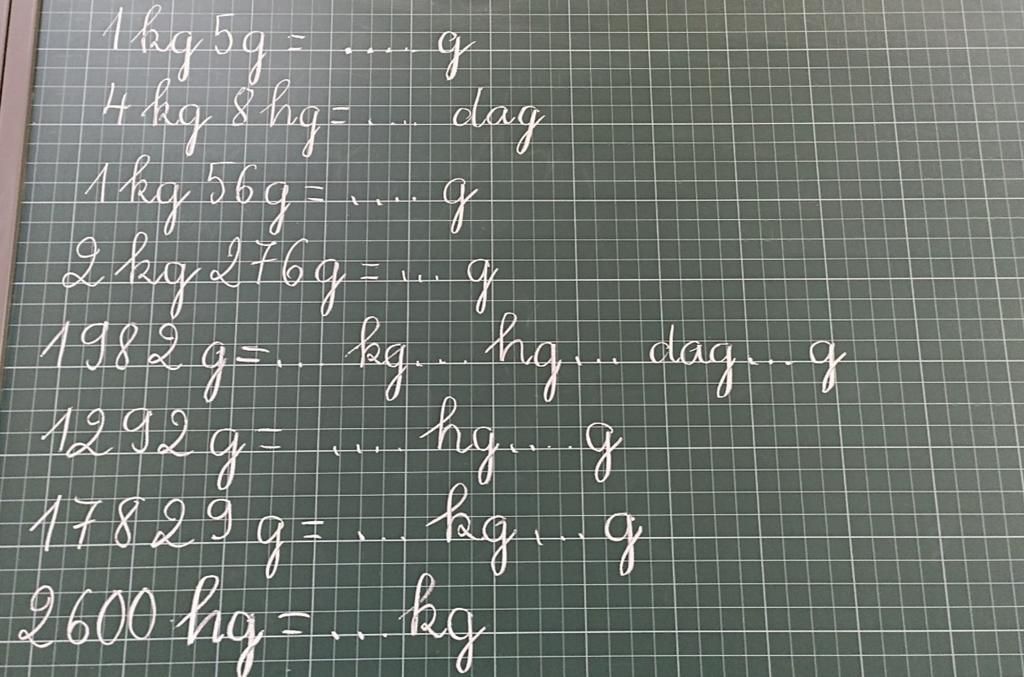 1kg 5g = ..... g
4kg 8hg = .... dag
1kg 56g = ..... g
2 kg 276g = ... g
1982 g = ... kg... hg... dag... g
1292 g = .... hg.... g
17829 g = ... kg ... g
2600 hg = ... kg